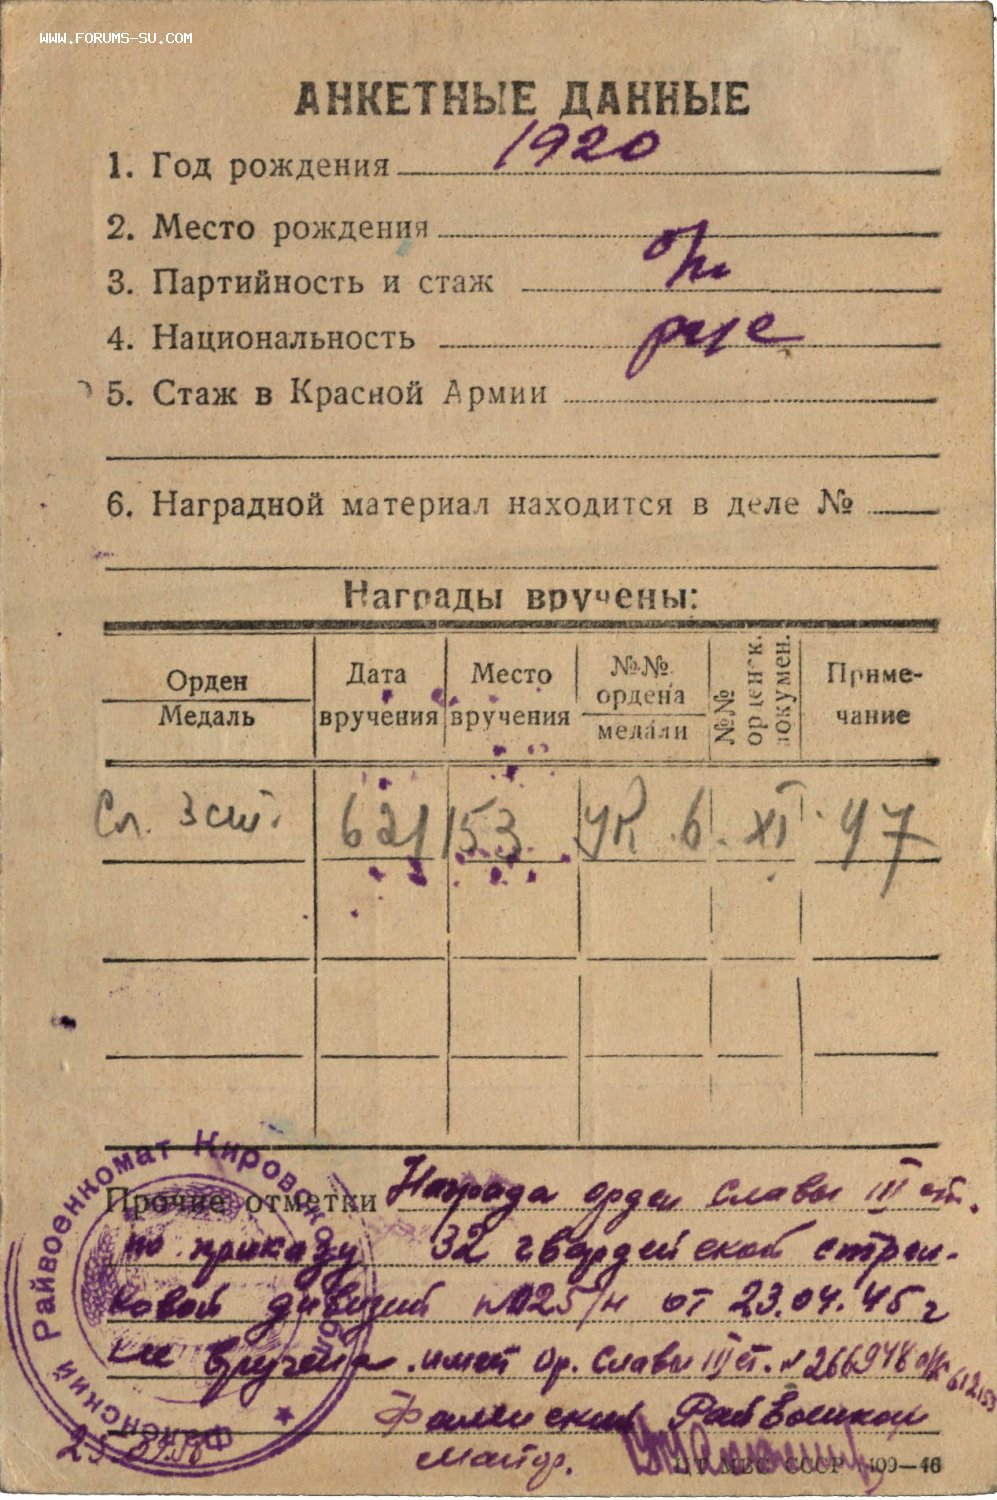 WWW.FORUMS-SU.COM
АНКЕТНЫЕ ДАННЫЕ
1. Год рождения 1920
2. Место рождения
3. Партийность и стаж
4. Национальность рус
5. Стаж в Красной Армии
6. Наградной материал находится в деле №
Награды вручены:
Орден
Медаль
Дата вручения
Место вручения
№№ ордена
медали
№№ орденск. докумен.
Примечание
Сл. 3 ст. 621153 УК 6. XI. 47
Прочие отметки Награда орден славы III ст.
по приказу 32 гвардейской стрел-
ковой дивизии №025/н от 23.04.45 г
не вручена. имеет ор. Славы III ст. № 266948 о/к 612153
Фаленский Райвоенком
Майор.
Фаленский Райвоенкомат Кировской обл.
ЦТ МВС СССР 409—46